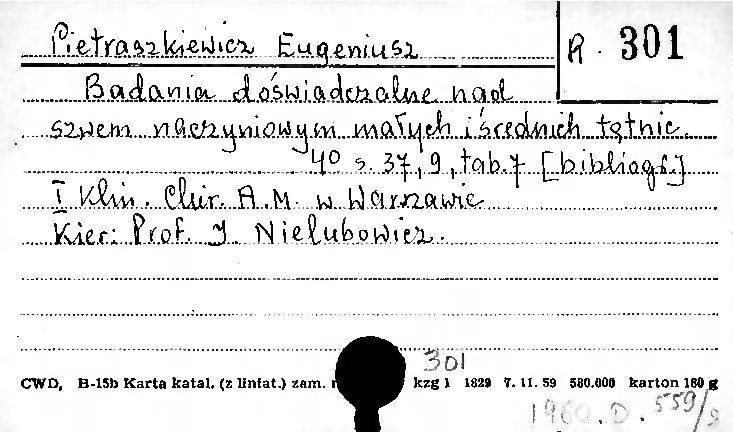 Pietraszkiewicz Eugeniusz
R. 301
Badania doświadczalne nad
szwem naczyniowym małych i średnich tętnic.
4° s. 37, 9, tab. 7 [bibliogr.]
I Klin. Chir. A.M. w Warszawie
Kier: Prof. J. Nielubowicz.
301
CWD, B-15b Karta katal. (z liniat.) zam. kzg 1 1829 7. 11. 59 580.000 karton 180 g
1960. D. 559/9